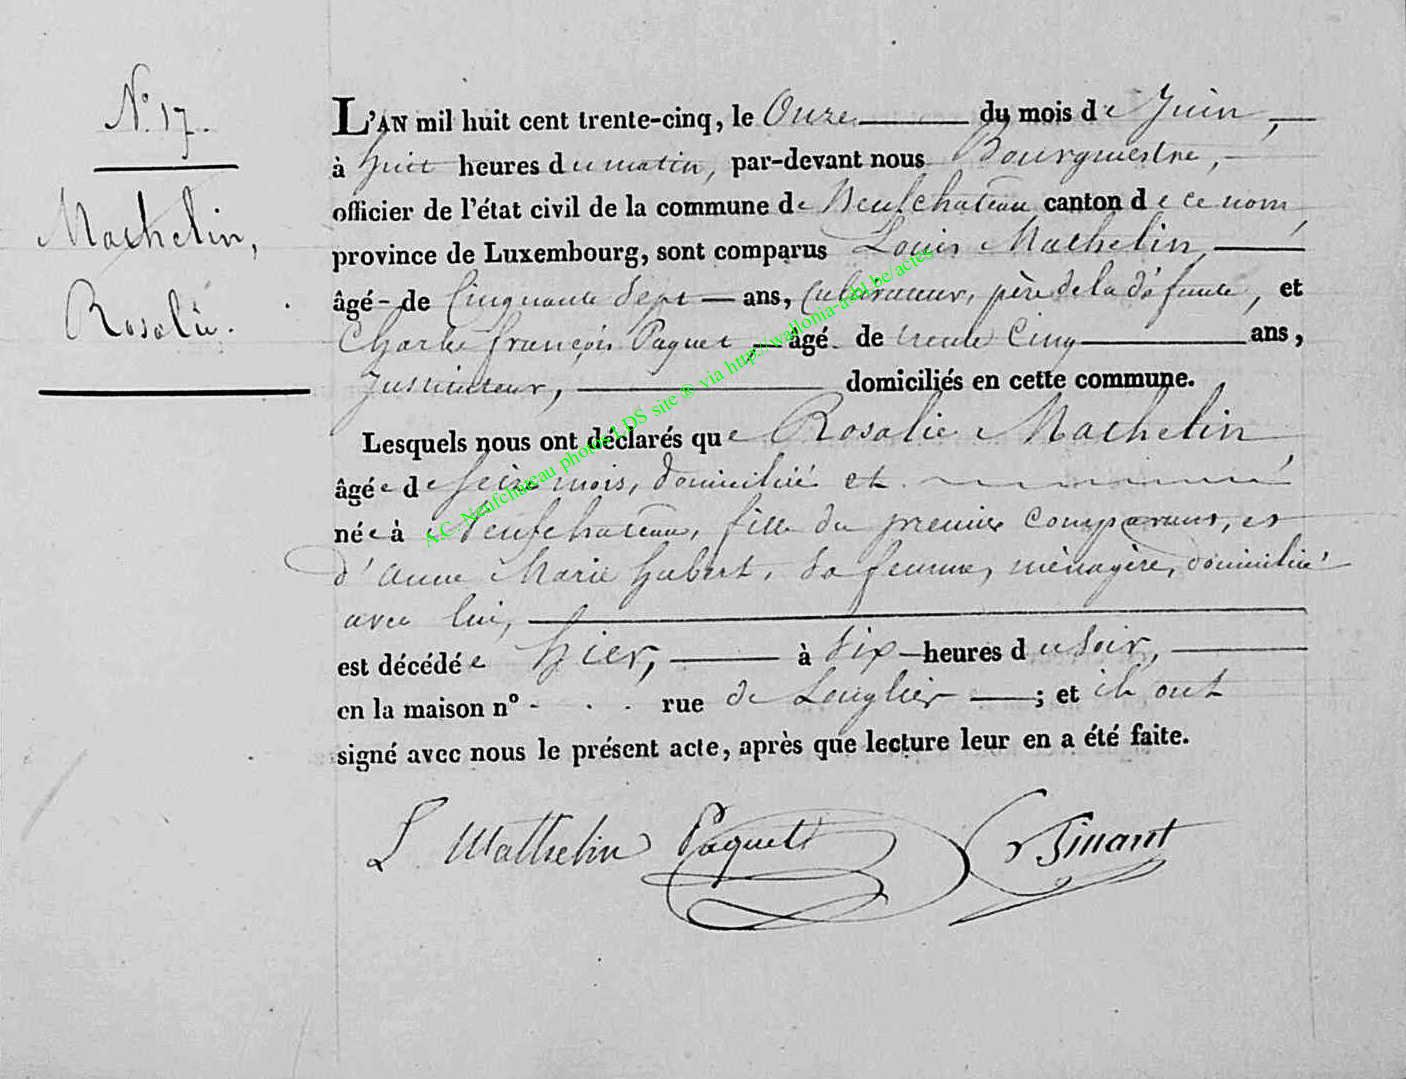 N.° 17.
Mathelin,
Rosalie.
L'AN mil huit cent trente-cinq, le Onze du mois de Juin,
à huit heures du matin, par-devant nous Bourgmestre,
officier de l'état civil de la commune de Neufchateau canton de ce nom,
province de Luxembourg, sont comparus Louis Mathelin,
âgé de Cinquante Sept ans, Cultivateur, père de la défunte, et
Charles françois Paquet âgé de trente Cinq ans,
Instituteur, domiciliés en cette commune.
Lesquels nous ont déclarés que Rosalie Mathelin,
âgée de seize mois, domiciliée et
née à Neufchateau, fille du premier comparant, et
d'Anne Marie hubert, sa femme, ménagère, domiciliée
avec lui,
est décédée hier, à six heures du soir,
en la maison n° - . . rue de Longlier ; et ils ont
signé avec nous le présent acte, après que lecture leur en a été faite.
L. Mathelin Paquet
A.C. Neufchateau photos LDS site ® via http://wallonia-asbl.be/actes